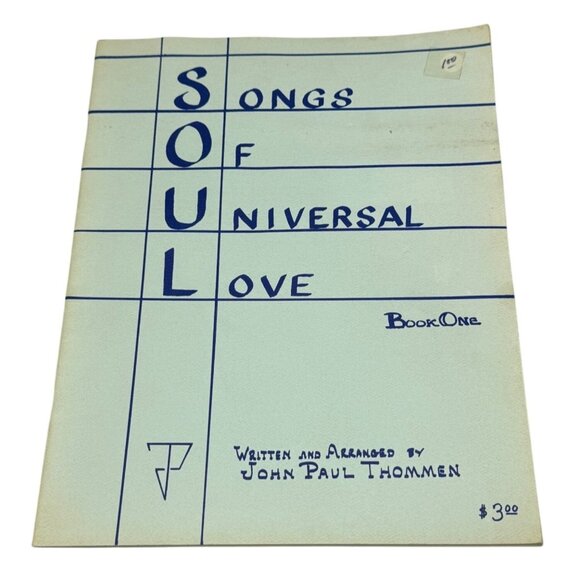 1.50
SONGS
OF
UNIVERSAL
LOVE
BOOK ONE
WRITTEN AND ARRANGED BY
JOHN PAUL THOMMEN
$3.00